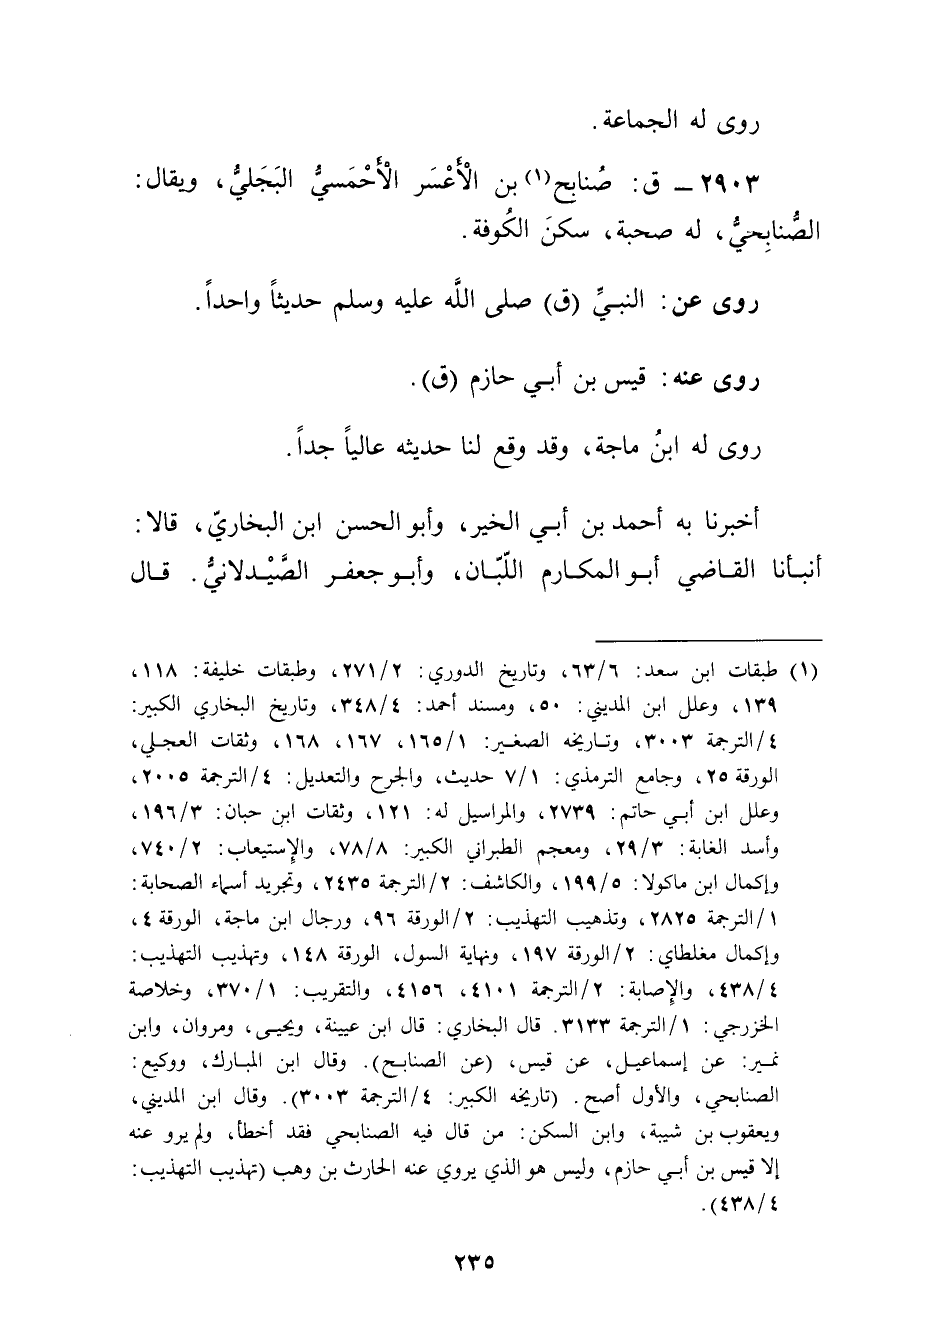 روى له الجماعة.
٢٩٠٣ ـ ق: صُنابح(١) بن الْأَعْسَر الْأَحْمَسيُّ البَجَليُّ، ويقال:
الصُّنابِحيُّ، له صحبة، سكنَ الكُوفة.
روى عن: النبيِّ (ق) صلى اللَّه عليه وسلم حديثاً واحداً.
روى عنه: قيس بن أبي حازم (ق).
روى له ابنُ ماجة، وقد وقع لنا حديثه عالياً جداً.
أخبرنا به أحمد بن أبي الخير، وأبو الحسن ابن البخاريّ، قالا:
أنبأنا القاضي أبو المكارم اللّبّان، وأبو جعفر الصَّيْدلانيُّ. قال
(١) طبقات ابن سعد: ٦/٦٣، وتاريخ الدوري: ٢/٢٧١، وطبقات خليفة: ١١٨،
١٣٩، وعلل ابن المديني: ٥٠، ومسند أحمد: ٤/٣٤٨، وتاريخ البخاري الكبير:
٤/الترجمة ٣٠٠٣، وتاريخه الصغير: ١/١٦٥، ١٦٧، ١٦٨، وثقات العجلي،
الورقة ٢٥، وجامع الترمذي: ١/٧ حديث، والجرح والتعديل: ٤/الترجمة ٢٠٠٥،
وعلل ابن أبي حاتم: ٢٧٣٩، والمراسيل له: ١٢١، وثقات ابن حبان: ٣/١٩٦،
وأسد الغابة: ٣/٢٩، ومعجم الطبراني الكبير: ٨/٧٨، والإستيعاب: ٢/٧٤٠،
وإكمال ابن ماكولا: ٥/١٩٩، والكاشف: ٢/الترجمة ٢٤٣٥، وتجريد أسماء الصحابة:
١/الترجمة ٢٨٢٥، وتذهيب التهذيب: ٢/الورقة ٩٦، ورجال ابن ماجة، الورقة ٤،
وإكمال مغلطاي: ٢/الورقة ١٩٧، ونهاية السول، الورقة ١٤٨، وتهذيب التهذيب:
٤/٤٣٨، والإصابة: ٢/الترجمة ٤١٠١، ٤١٥٦، والتقريب: ١/٣٧٠، وخلاصة
الخزرجي: ١/الترجمة ٣١٣٣. قال البخاري: قال ابن عيينة، ويحيى، ومروان، وابن
نمير: عن إسماعيل، عن قيس، (عن الصنابح). وقال ابن المبارك، ووكيع:
الصنابحي، والأول أصح. (تاريخه الكبير: ٤/الترجمة ٣٠٠٣). وقال ابن المديني،
ويعقوب بن شيبة، وابن السكن: من قال فيه الصنابحي فقد أخطأ، ولم يرو عنه
إلا قيس بن أبي حازم، وليس هو الذي يروي عنه الحارث بن وهب (تهذيب التهذيب:
٤/٤٣٨).
٢٣٥